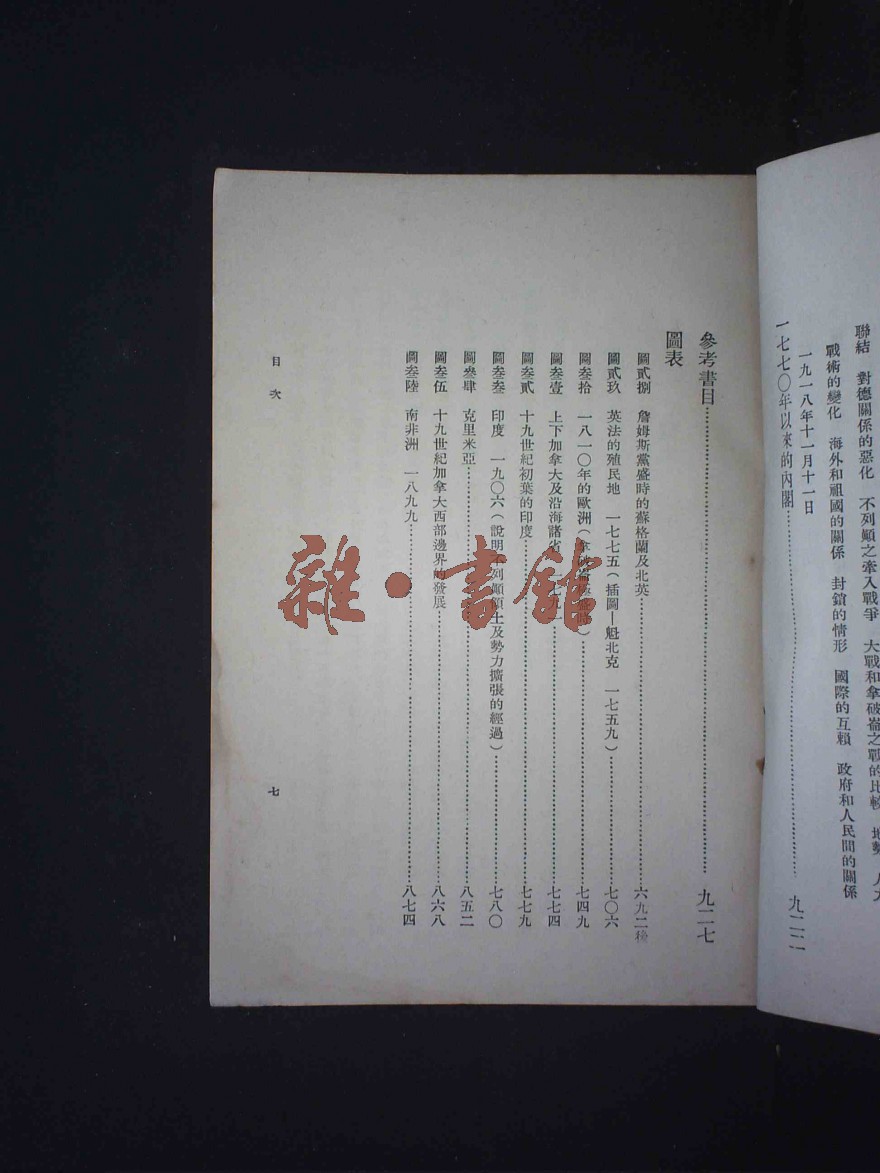 聯結 對德關係的惡化 不列顛之牽入戰爭 大戰和拿破崙之戰的比較 地勢 人力
戰術的變化 海外和祖國的關係 封鎖的情形 國際的互賴 政府和人民間的關係
一九一八年十一月十一日
一七七〇年以來的內閣……九二二
參考書目……九二七
圖表
圖貳捌 詹姆斯黨盛時的蘇格蘭及北英……六九二後
圖貳玖 英法的殖民地 一七七五(插圖—魁北克 一七五九)……七〇六
圖叁拾 一八一〇年的歐洲(拿破崙極盛時)……七四九
圖叁壹 上下加拿大及沿海諸省……七七四
圖叁貳 十九世紀初葉的印度……七七九
圖叁叁 印度 一九〇六(說明不列顛領土及勢力擴張的經過)……七八〇
圖叁肆 克里米亞……八五二
圖叁伍 十九世紀加拿大西部邊界的發展……八六八
圖叁陸 南非洲 一八九九……八七四
目次
七
雜·書館